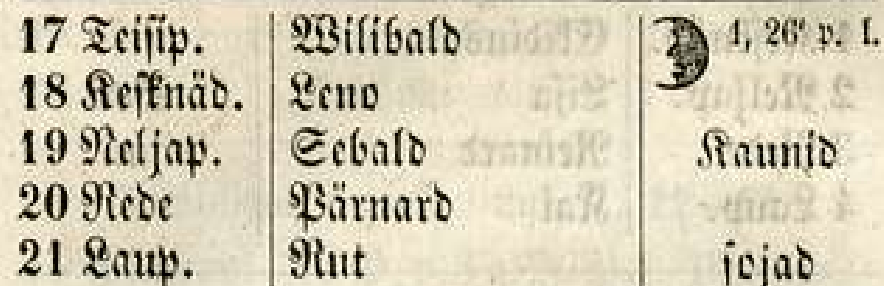 17 Teisip. Wilibald 4, 26' p. l.
18 Kesknäd. Leno
19 Neljap. Sebald Kaunid
20 Rede Pärnard
21 Laup. Rut sojad